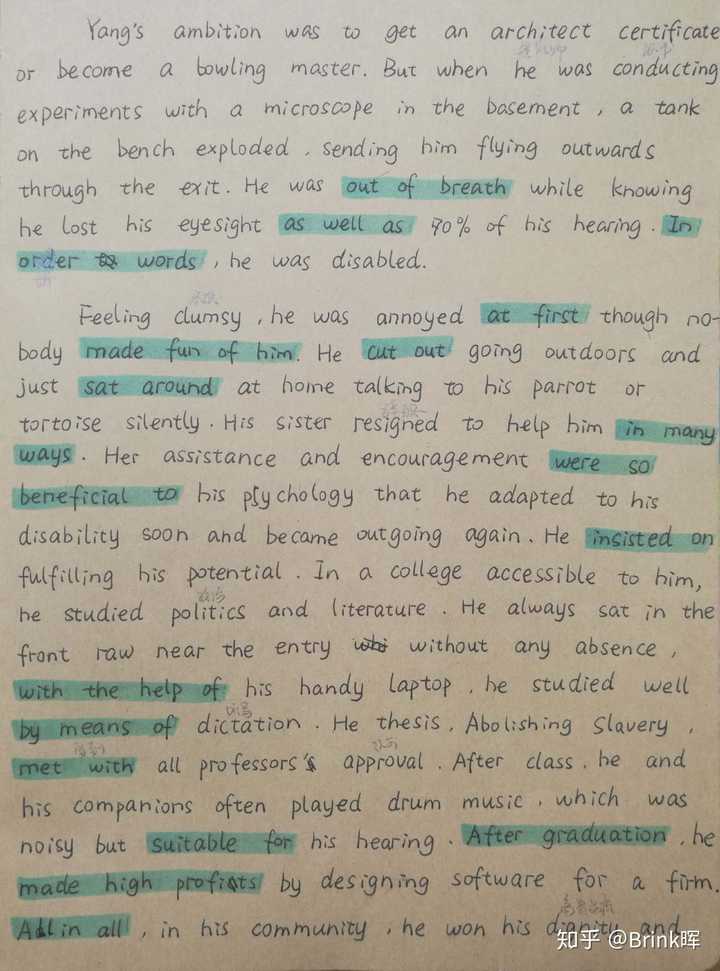 Yang's ambition was to get an architect certificate
or become a bowling master. But when he was conducting
experiments with a microscope in the basement, a tank
on the bench exploded, sending him flying outwards
through the exit. He was out of breath while knowing
he lost his eyesight as well as 70% of his hearing. In
order words, he was disabled.
Feeling clumsy, he was annoyed at first though no-
body made fun of him. He cut out going outdoors and
just sat around at home talking to his parrot or
tortoise silently. His sister resigned to help him in many
ways. Her assistance and encouragement were so
beneficial to his psychology that he adapted to his
disability soon and became outgoing again. He insisted on
fulfilling his potential. In a college accessible to him,
政治
he studied politics and literature. He always sat in the
front raw near the entry without any absence,
with the help of his handy laptop, he studied well
听写
by means of dictation. He thesis, Abolishing Slavery,
met with all professors's approval. After class, he and
his companions often played drum music, which was
noisy but suitable for his hearing. After graduation, he
made high profits by designing software for a firm.
高贵品质
All in all, in his community, he won his dignity and
知乎 @Brink晖